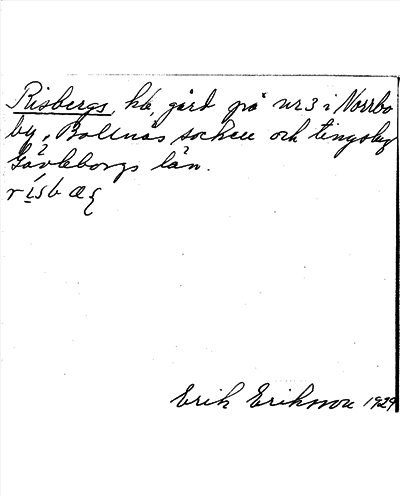 Risbergs, hb, gård på nr 3 i Norrbo
by, Bollnäs socken och tingslag
Gävleborgs län.
rísbæʂ
Erik Eriksson 1929